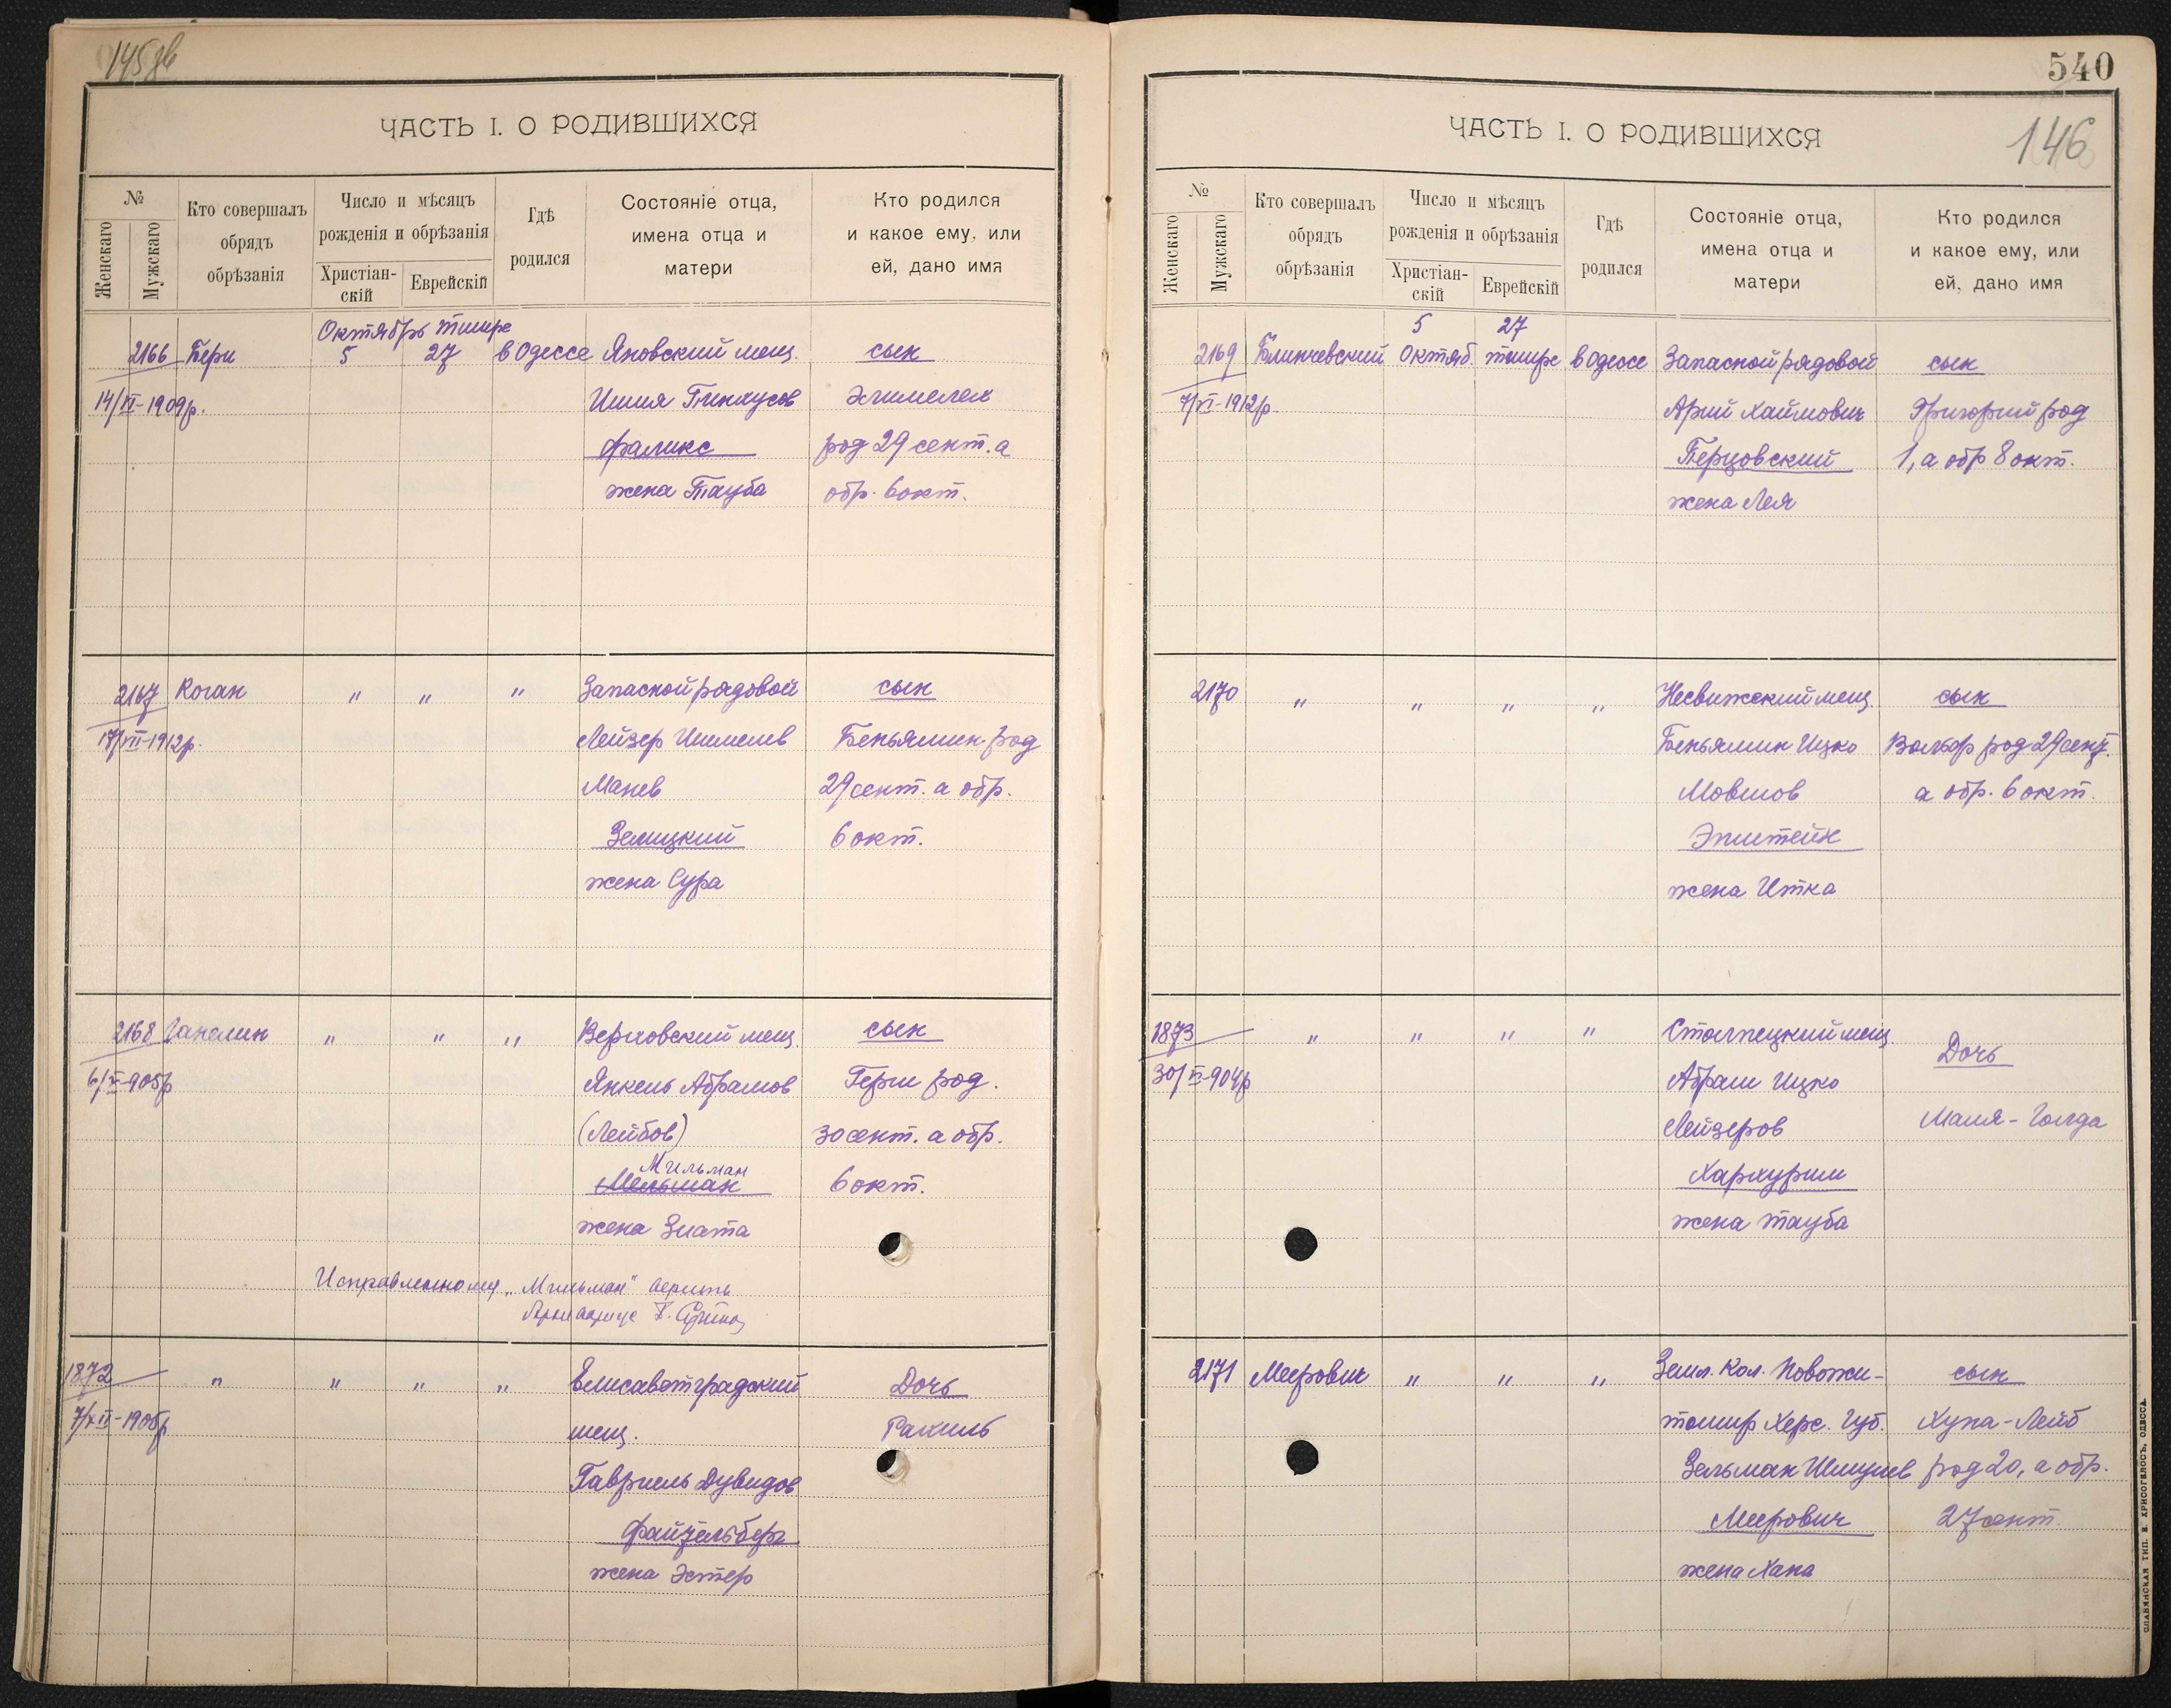 145 зв
ЧАСТЬ I. О РОДИВШИХСЯ
№
Женскаго
Мужскаго
Кто совершалъ
обрядъ
обрѣзанія
Число и мѣсяцъ
рожденія и обрѣзанія
Христіан-
скій
Еврейскій
Гдѣ
родился
Состояніе отца,
имена отца и
матери
Кто родился
и какое ему, или
ей, дано имя
Октябрь тишре
2166 Бери 5 27 в Одессе Яновский мещ. сын
14/VI-1909р. Шмия Пинхусов Элимелех
Фаликс род 29 сент. а
жена Тауба обр. 6 окт.
2167 Коган " " " Запасной рядовой сын
17/VII-1912р. Лейзер Шмелев Беньямин род
Манев 29 сент. а обр.
Зелицкий 6 окт.
жена Сура
2168 Ганелин " " " Верховский мещ. сын
Янкель Абрамов Герш род.
(Лейбов) 30 сент. а обр.
Мильман
Мельман 6 окт.
жена Злата
Исправленному „Мильман" верить
1872 " " " " Елисаветградский Дочь
7/XII-1905р мещ. Рахиль
Гавриель Дувидов
Файгельберг
жена Эстер
540
ЧАСТЬ I. О РОДИВШИХСЯ
146
№
Женскаго
Мужскаго
Кто совершалъ
обрядъ
обрѣзанія
Число и мѣсяцъ
рожденія и обрѣзанія
Христіан-
скій
Еврейскій
Гдѣ
родился
Состояніе отца,
имена отца и
матери
Кто родился
и какое ему, или
ей, дано имя
5 27
2169 Блинчевский Октяб. тишре в Одессе Запасной рядовой сын
7/VI-1912р. Арий Хаймович Григорий род
Перцовский 1, а обр 8 окт.
жена Лея
2170 " " " " Несвижский мещ. сын
Беньямин Ицко Вольф род 29 сент.
Мовшов а обр. 6 окт.
Эпштейн
жена Итка
1873 " " " " Столпецкий мещ. Дочь
30/VI-904р Абрам Ицко
Лейзеров Маля-Голда
Хархурим
жена Тауба
2171 Меерович " " " Земл. Кол. Новожи- сын
томир Херс. Губ. Хуна-Лейб
Зельман Шмулев род 20, а обр.
Меерович 27 сент.
жена Хана
СЛАВЯНСКАЯ ТИП. Н. ХРИСОГЕЛОСЪ, ОДЕССА